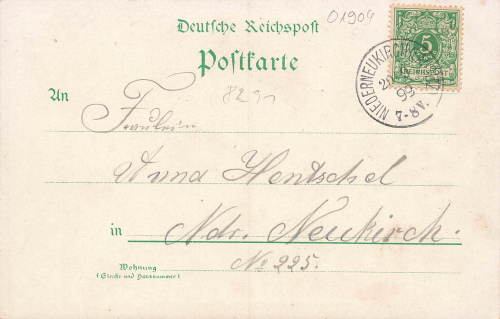 Deutsche Reichspost
01904
Postkarte
5
REICHSPOST
NIEDERNEUKIRCH
99
7-8V.
An
8291
Fräulein
Anna Hentschel
in Ndr. Neukirch.
Wohnung
(Straße und Hausnummer)
No 225.